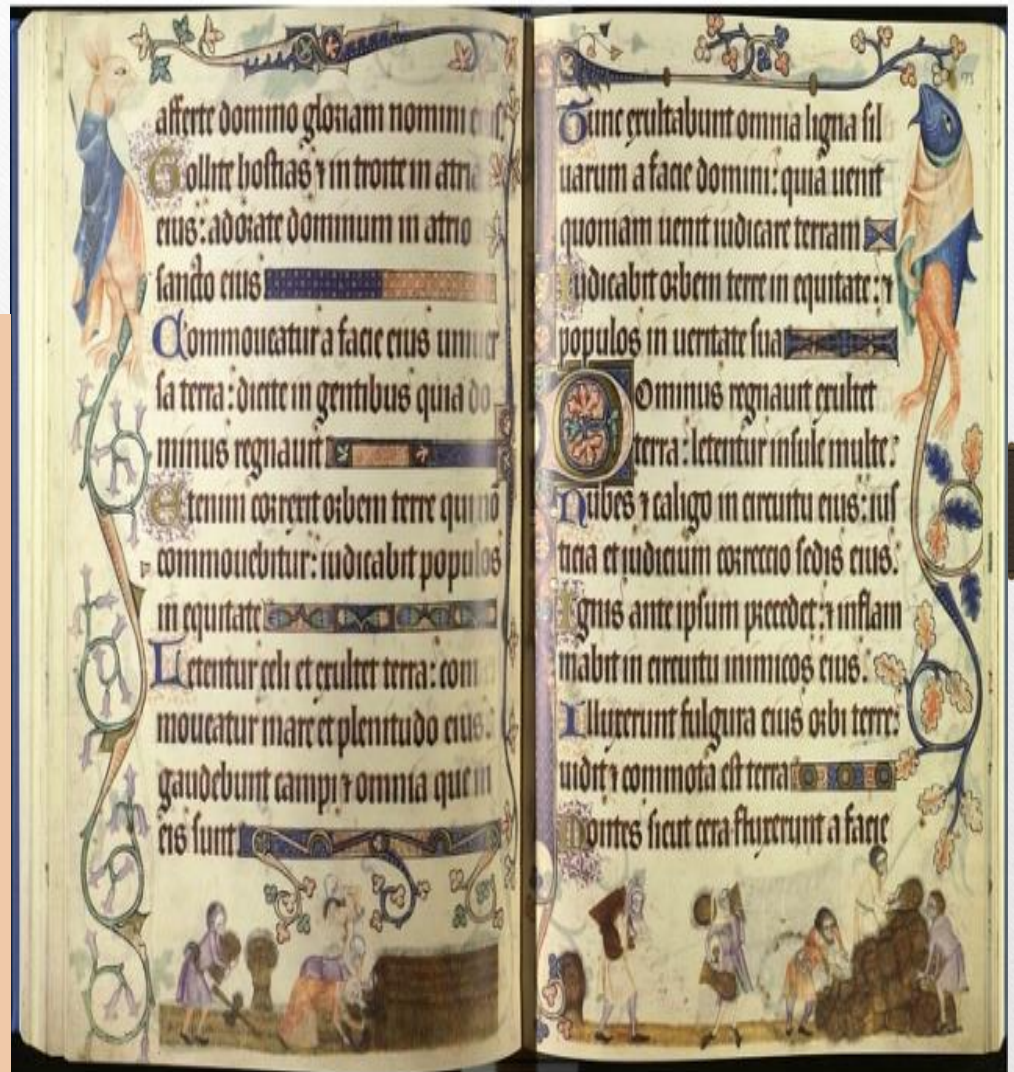 afferte domino gloriam nomini eius.
Tollite hostias ⁊ in troite in atria
eius: adorate dominum in atrio
sancto eius
Commoueatur a facie eius uniuer
sa terra: dicite in gentibus quia do
minus regnauit
Etenim correxit orbem terre qui nō
commouebitur: iudicabit populos
in equitate
Letentur celi et exultet terra: com
moueatur mare et plenitudo eius:
gaudebunt campi ⁊ omnia que in
eis sunt
Tunc exultabunt omnia ligna sil
uarum a facie domini: quia uenit
quoniam uenit iudicare terram
Iudicabit orbem terre in equitate: ⁊
populos in ueritate sua
Dominus regnauit exultet
terra: letentur insule multe:
Nubes ⁊ caligo in circuitu eius: ius
ticia et iudicium correccio sedis eius.
Ignis ante ipsum precedet: ⁊ inflam
mabit in circuitu inimicos eius.
Illuxerunt fulgura eius orbi terre:
uidit ⁊ commota est terra
Montes sicut cera fluxerunt a facie